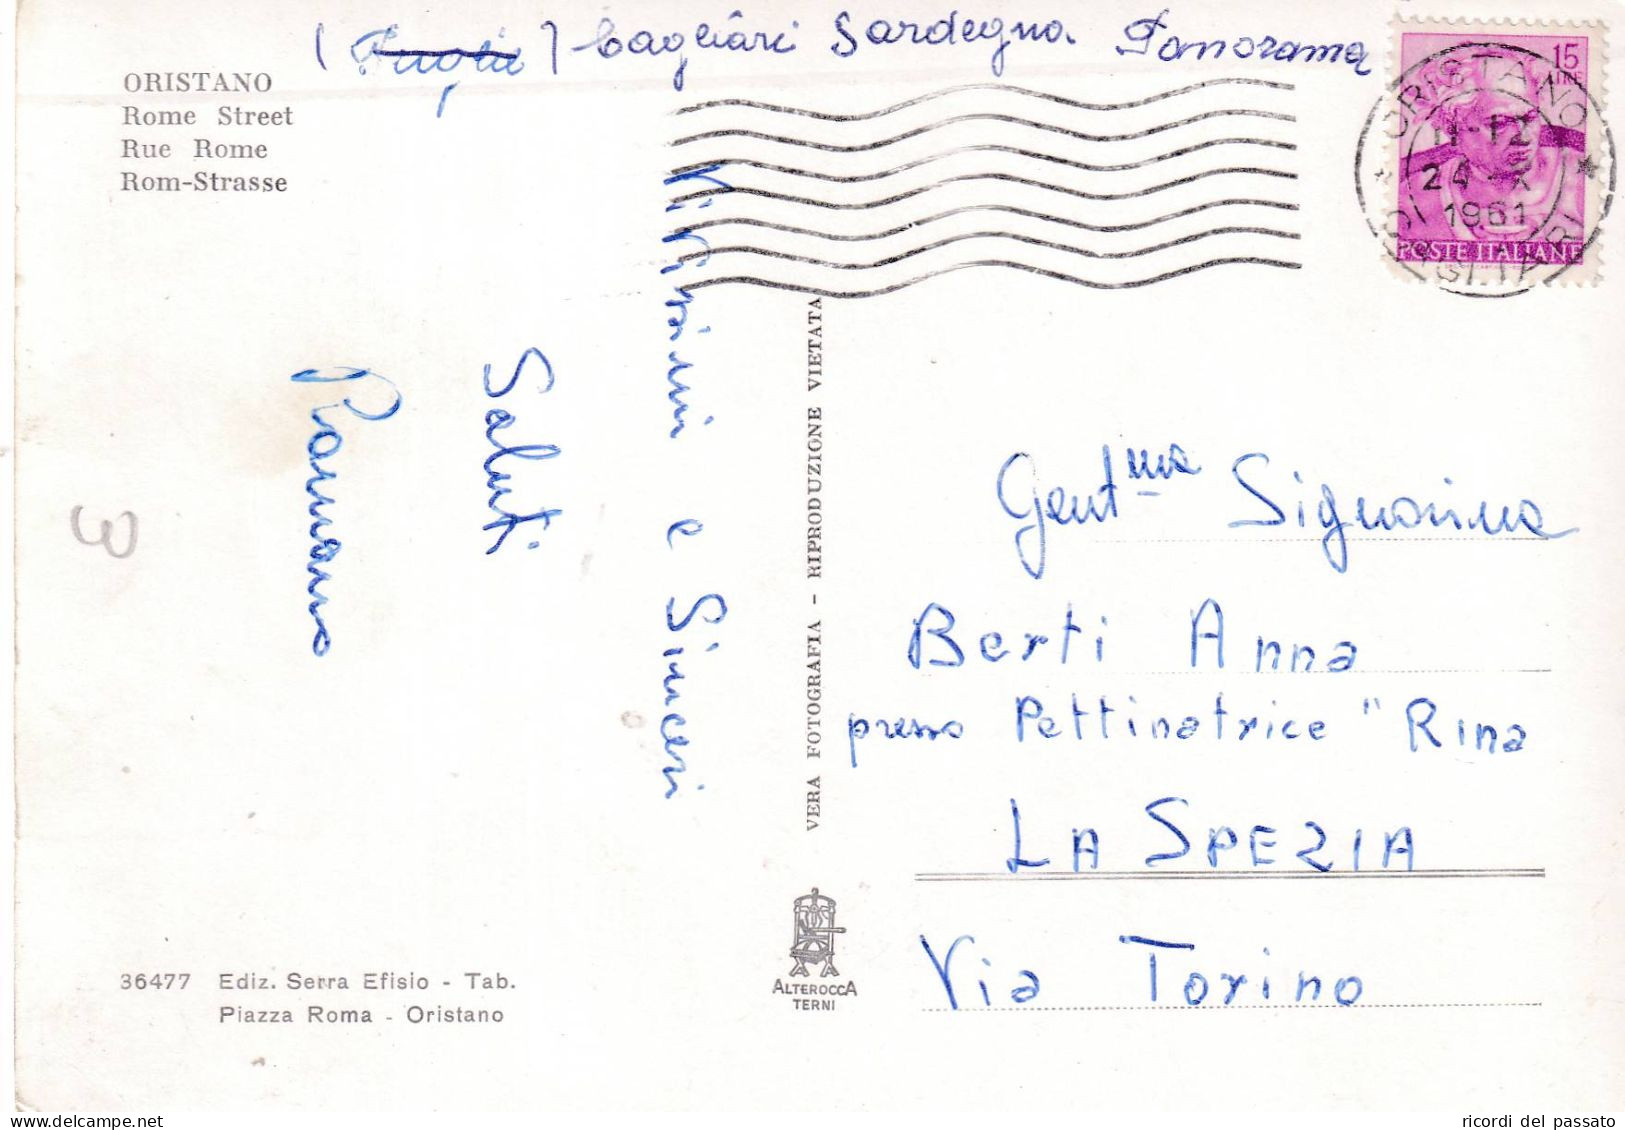 Cagliâri Sardegna. Panorama
ORISTANO
Rome Street
Rue Rome
Rom-Strasse
15
LIRE
POSTE ITALIANE
ORISTANO
11-12
24 - X
1961
CAGLIARI
Vivissimi e Sinceri
Saluti
Romano
VERA FOTOGRAFIA - RIPRODUZIONE VIETATA
Gent.ma Signorina
Berti Anna
presso Pettinatrice "Rina
LA SPEZIA
Via Torino
3
36477 Ediz. Serra Efisio - Tab.
Piazza Roma - Oristano
ALTEROCCA
TERNI
ricordi del passato